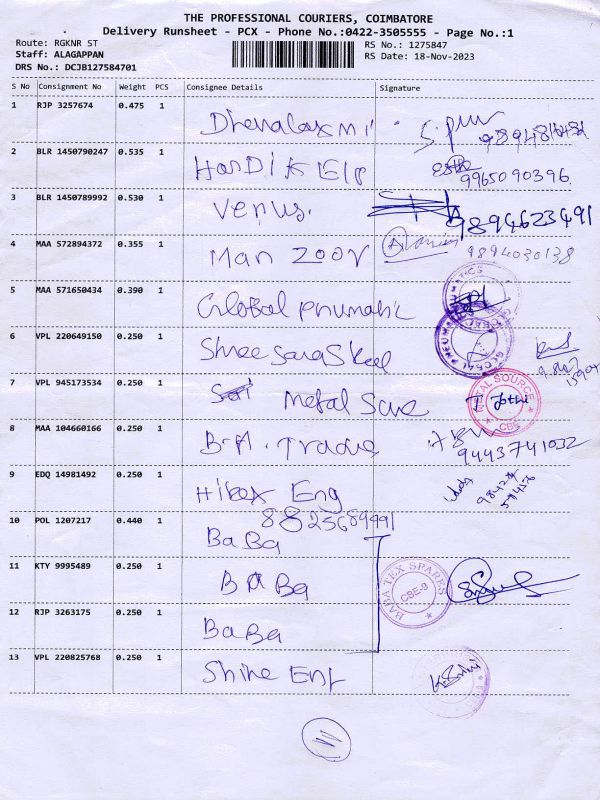 THE PROFESSIONAL COURIERS, COIMBATORE
Delivery Runsheet - PCX - Phone No.:0422-3505555 - Page No.:1
Route: RGKNR ST
Staff: ALAGAPPAN
DRS No.: DCJB127584701
RS No.: 1275847
RS Date: 18-Nov-2023
S No Consignment No Weight PCS Consignee Details Signature
1 RJP 3257674 0.475 1
Dhenalaxmi
2 BLR 1450790247 0.535 1
HarDik Ele 9965090396
3 BLR 1450789992 0.530 1
Venus. 9894623491
4 MAA 572894372 0.355 1
Man zoor 9894030138
5 MAA 571650434 0.390 1
Global pnumatic
6 VPL 220649150 0.250 1
GLOBAL PNEUMATICS
7 VPL 945173534 0.250 1
Metal METAL SOURCE CBE Jothi
8 MAA 104660166 0.250 1
B.A. 9443741032
9 EDQ 14981492 0.250 1
Hitex Eng
8825689991
10 POL 1207217 0.440 1
BaBa
11 KTY 9995489 0.250 1
BABa BABA TEX SPARES CBE-9
12 RJP 3263175 0.250 1
BaBa
13 VPL 220825768 0.250 1
Shine Ent